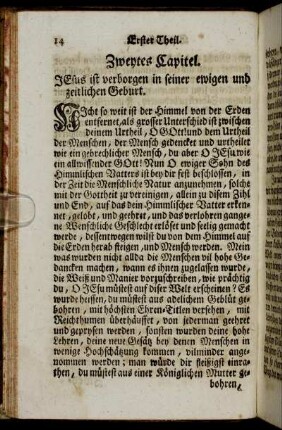 14 Erster Theil.
Zweytes Capitel.
JEsus ist verborgen in seiner ewigen und
zeitlichen Geburt.
Nicht so weit ist der Himmel von der Erden
entfernet, als grosser Unterschid ist zwischen
deinem Urtheil, O GOtt! und dem Urtheil
der Menschen, der Mensch gedencket und urtheilet
wie ein gebrechlicher Mensch, du aber O JEsu wie
ein allwissender GOtt! Nun O ewiger Sohn des
Himmlischen Vatters ist bey dir fest beschlossen, in
der Zeit die Menschliche Natur anzunehmen, solche
mit der Gottheit zu vereinigen, allein zu disem Zihl
und End, auf das dein Himmlischer Vatter erken-
net, gelobt, und geehret, und das verlohren gange-
ne Menschliche Geschlecht erlöset und seelig gemacht
werde, dessentwegen wilst du von dem Himmel auf
die Erden herab steigen, und Mensch werden. Mein
was wurden nicht allda die Menschen vil hohe Ge-
dancken machen, wann es ihnen zugelassen wurde,
die Weiß und Manier vorzuschreiben, wie prächtig
du, O JEsu müstest auf diser Welt erscheinen? Es
wurde heissen, du müstest aus adelichem Geblüt ge-
bohren, mit höchsten Ehren-Titlen versehen, mit
Reichthumen überhäuffet, von jederman geehret
und gepriesen werden, sonsten wurden deine hohe
Lehren, deine neue Gesätz bey denen Menschen in
wenige Hochschätzung kommen, vilminder ange-
nommen werden; man würde dir fleißigst einra-
then, du müstest aus einer Königlichen Mutter ge-
bohren,